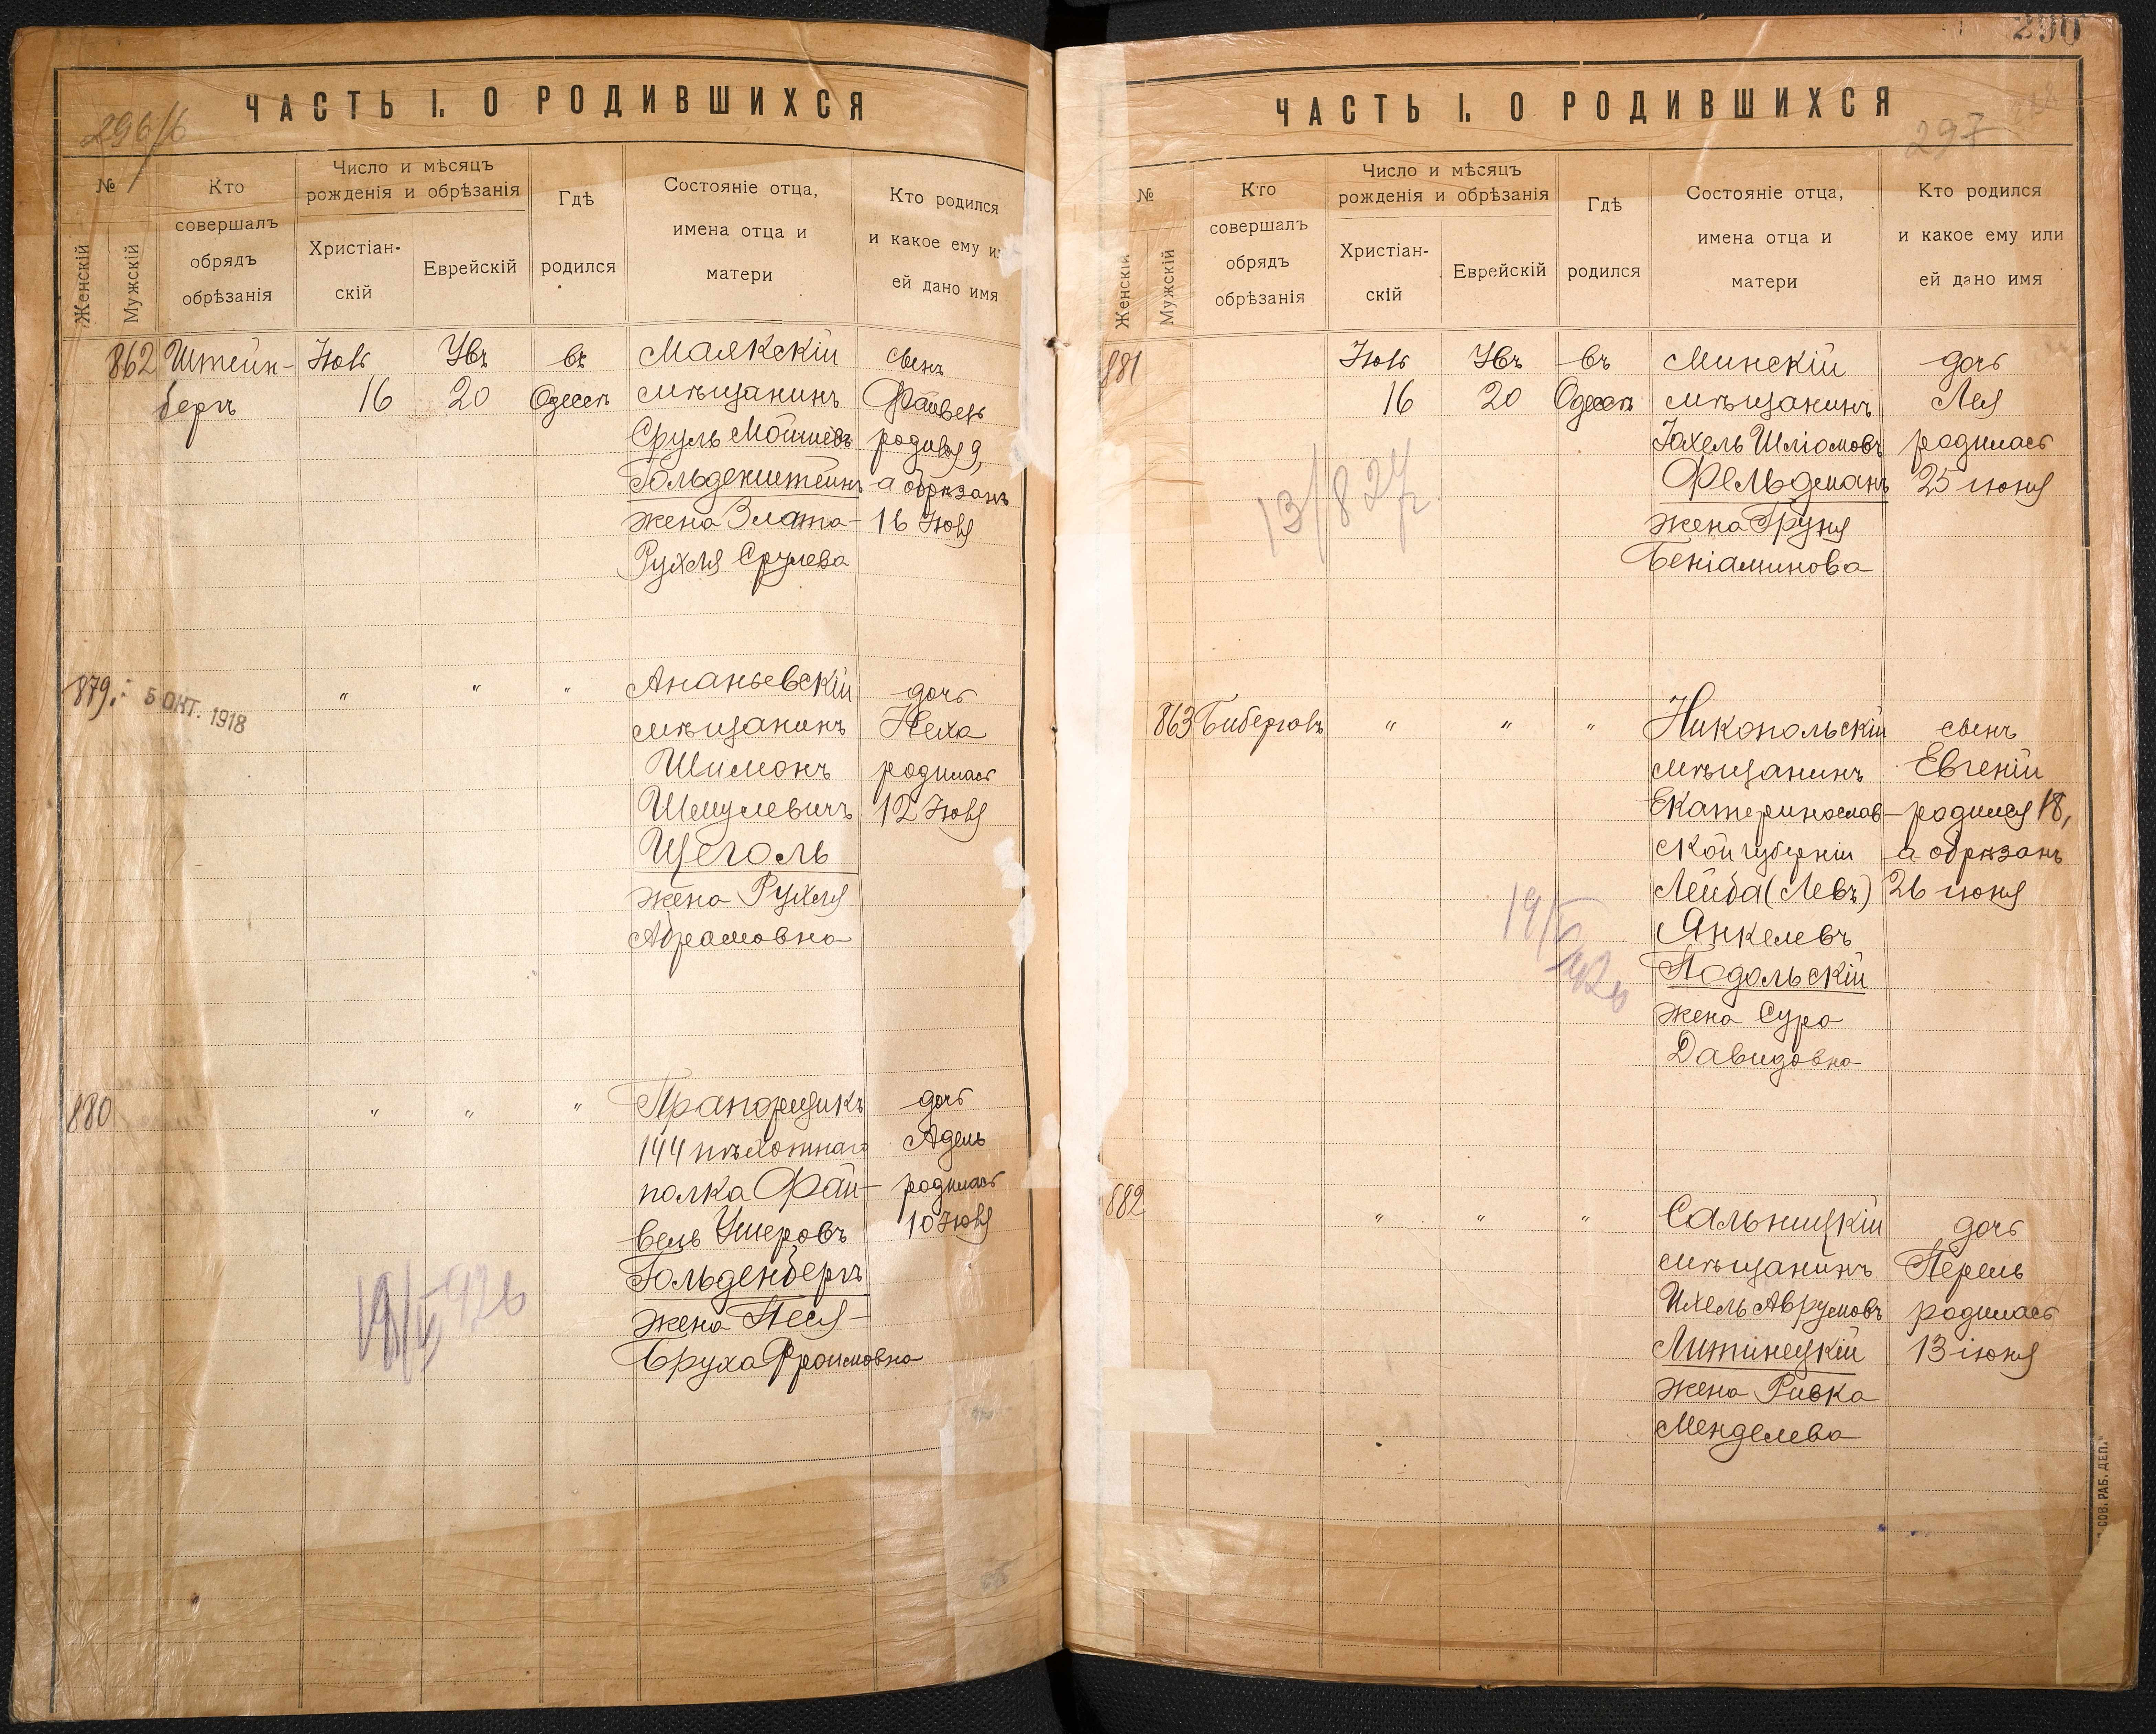 ЧАСТЬ I. О РОДИВШИХСЯ
№
Женскій
Мужскій
Кто
совершалъ
обрядъ
обрѣзанія
Число и мѣсяцъ
рожденія и обрѣзанія
Христіан-
скій
Еврейскій
Гдѣ
родился
Состояніе отца,
имена отца и
матери
Кто родился
и какое ему
ей дано имя
862 Штейн- Іюль въ Маякскій сынъ
бергъ 16 20 Одессѣ мѣщанинъ Файвель
Сруль Мошковъ родился 9,
Гольденштейнъ а обрѣзанъ
жена Злата- 16 Іюля
Рухля Срулева
879. 5 ОКТ. 1918 " " " Ананьевскій дочь
мѣщанинъ Неха
Шимонъ родилась
Шмулевичъ 12 Іюля
Щеголь
жена Рухля
Абрамовна
880 " " " Прапорщикъ дочь
144 пѣхотнаго Адель
полка Фай- родилась
вель Ушеровъ 10 Іюля
Гольденбергъ
жена Песя-
Бруха Фроимовна
290
ЧАСТЬ I. О РОДИВШИХСЯ
297
№
Женскій
Мужскій
Кто
совершалъ
обрядъ
обрѣзанія
Число и мѣсяцъ
рожденія и обрѣзанія
Христіан-
скій
Еврейскій
Гдѣ
родился
Состояніе отца,
имена отца и
матери
Кто родился
и какое ему или
ей дано имя
881 Іюль въ Минскій дочь
16 20 Одессѣ мѣщанинъ Лея
Іохель Шліомовъ родилась
Фельдманъ 25 іюня
жена Груня
Беніаминова
863 Биберговъ " " " Никопольскій сынъ
мѣщанинъ Евгеній
Екатеринослав- родился 18,
ской губерніи а обрѣзанъ
Лейба (Левъ) 26 іюня
Янкелевъ
Подольскій
жена Сура
Давидовна
882 " " " Сальницкій дочь
мѣщанинъ Перель
Ихель Аврумовъ родилась
Литинецкій 13 іюня
жена Ривка
Менделева
СОВ. РАБ. ДЕП."